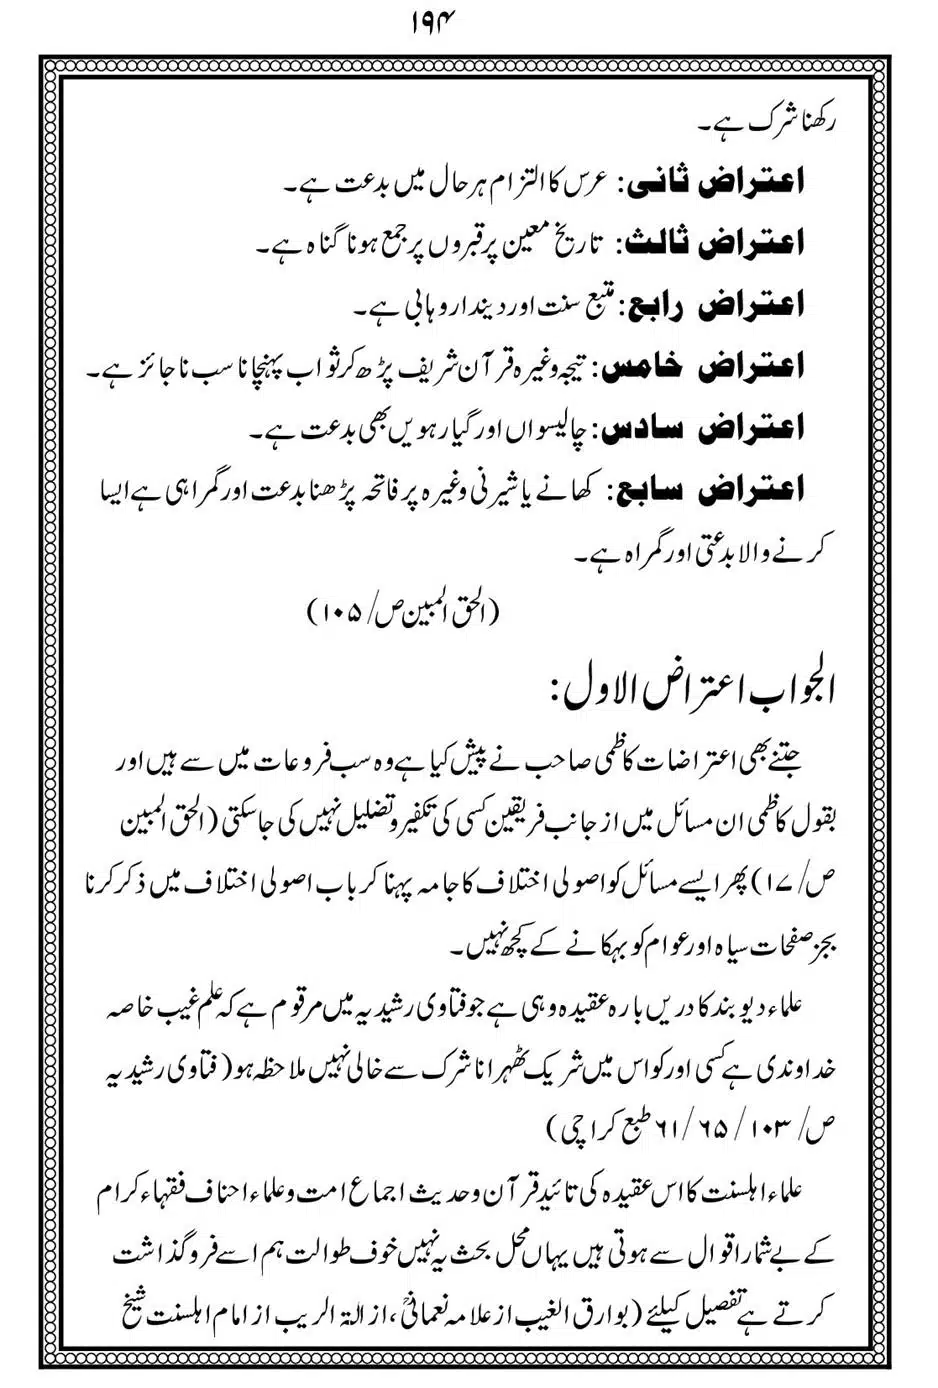 ۱۹۴
رکھنا شرک ہے۔
اعتراض ثانی: عرس کا التزام ہر حال میں بدعت ہے۔
اعتراض ثالث: تاریخ معین پر قبروں پر جمع ہونا گناہ ہے۔
اعتراض رابع: متبع سنت اور دیندار وہابی ہے۔
اعتراض خامس: تیجہ وغیرہ قرآن شریف پڑھ کر ثواب پہنچانا سب ناجائز ہے۔
اعتراض سادس: چالیسواں اور گیارہویں بھی بدعت ہے۔
اعتراض سابع: کھانے یا شیرنی وغیرہ پر فاتحہ پڑھنا بدعت اور گمراہی ہے ایسا
کرنے والا بدعتی اور گمراہ ہے۔
(الحق المبین ص/ ۱۰۵)
الجواب اعتراض الاول:
جتنے بھی اعتراضات کاظمی صاحب نے پیش کیا ہے وہ سب فروعات میں سے ہیں اور
بقول کاظمی ان مسائل میں از جانب فریقین کسی کی تکفیر و تضلیل نہیں کی جاسکتی (الحق المبین
ص/ ۱۷) پھر ایسے مسائل کو اصولی اختلاف کا جامہ پہنا کر باب اصولی اختلاف میں ذکر کرنا
بجز صفحات سیاہ اور عوام کو بہکانے کے کچھ نہیں۔
علماء دیوبند کا دریں بارہ عقیدہ وہی ہے جو فتاوی رشیدیہ میں مرقوم ہے کہ علم غیب خاصہ
خداوندی ہے کسی اور کو اس میں شریک ٹھہرانا شرک سے خالی نہیں ملاحظہ ہو (فتاوی رشیدیہ
ص/ ۱۰۳ / ۶۵ /۶۱ طبع کراچی)
علماء اہلسنت کا اس عقیدہ کی تائید قرآن و حدیث اجماع امت و علماء احناف فقہاء کرام
کے بے شمار اقوال سے ہوتی ہیں یہاں محل بحث یہ نہیں خوف طوالت ہم اسے فروگذاشت
کرتے ہے تفصیل کیلئے (بوارق الغیب از علامہ نعمانیؒ، ازالۃ الریب از امام اہلسنت شیخ